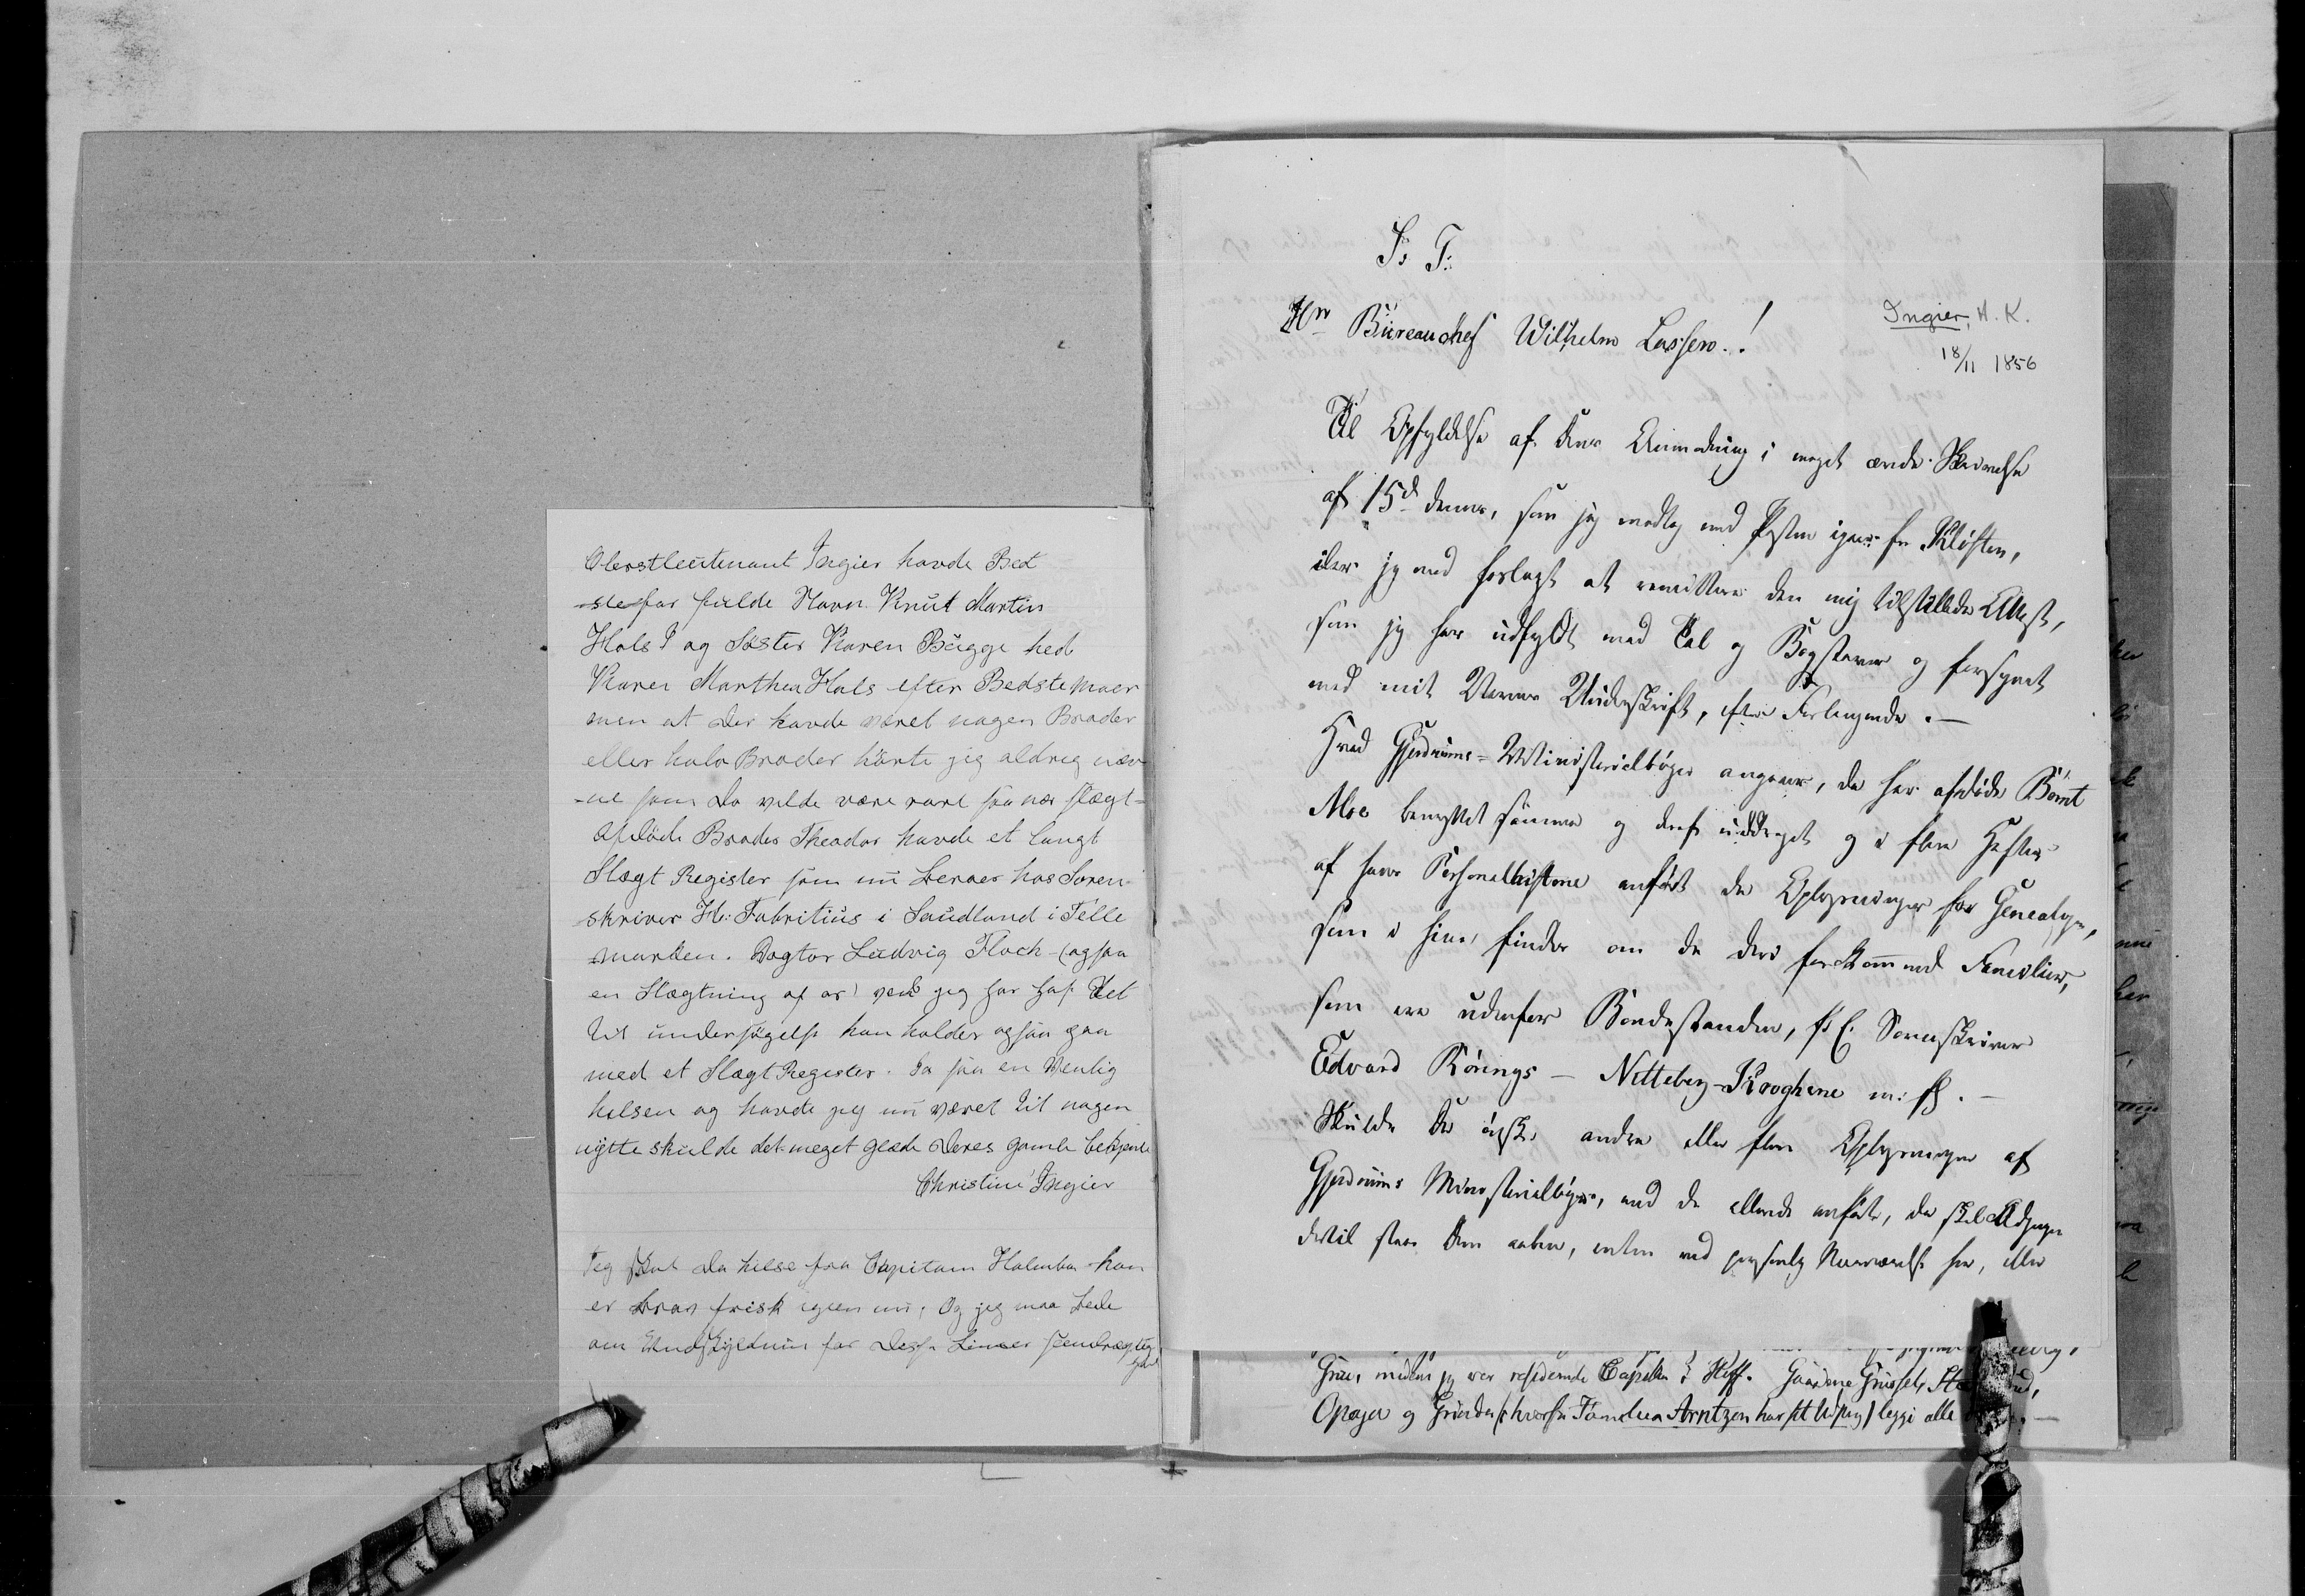 Oberstleutenant Ingier havde Bed
stefar fulde Navn. Knut Martin
Hals? og Søster Karen Bügge hed
Karen Marthea Hals efter Bedstemoer
men at der havde været nogen Broder
eller halv Broder hörte jeg aldrig næv
-ne som da vilde være rart saa nær slægt-
Afdöde Broder Theodor havde et langt
Slægt Register som nu beroer hos Soren-
skriver H: Fabritius i Saudland i Telle
marken. Dogtor Ludvig Floch (ogsaa
en Slægtning af os) ved jeg har haft det
til undersøgelse han holder ogsaa paa
med et Slægt Register. Ja saa en Venlig
helsen og havde jeg nu været til nogen
nÿtte skulde det meget glæde Deres gamle bekjente
Christine Ingier
Jeg skal da hilse fra Capitain Holmboe han
er brav frisk igien nu; Og jeg maa bede
om Undskyldning for disse Linier
S: T:
Hrr Büreauchef Wilhelm Lassen.!
Ingier, H. K.
18/11 1856
Til Opfyldelse af Deres Anmodning i meget ærede Skrivelse
af 15d dennes, som jeg modtog med Posten igaar fra Kløften,
iler jeg med forlagt at remittere den mig tilstillede Attest,
som jeg har udfyldt med Tal og Bogstaver og forsynet
med mit Navns Underskrift, efter Forlangende. —
Hvad Gjerdrums=Ministerialbøger angaaer, da har afdøde Bernt
Moe benyttet samme og deraf uddraget og i flere Hefter
af hans Personalhistorie anført de Oplysninger for Genealogen,
som i hine findes om de deri forekommend Familier,
som ere udenfor Bondestanden, f. E. Sorenskriver
Edvard Rörings — Nitteberg-Kroghene m: fl. —
Skulde De ønske andre eller flere Oplysninger af
Gjerdrums Ministerialbøger, end de allerede anførte, da skal Adgangen
dertil staae Dem aaben, enten ved personlig Nærværelse her, eller
Grue, medens jeg var residerende Capellan i Hoff. Gaardene Grüsset,
Opager og Grinder (hvorfra Familien Arntzen har sit Udspring) ligge alle